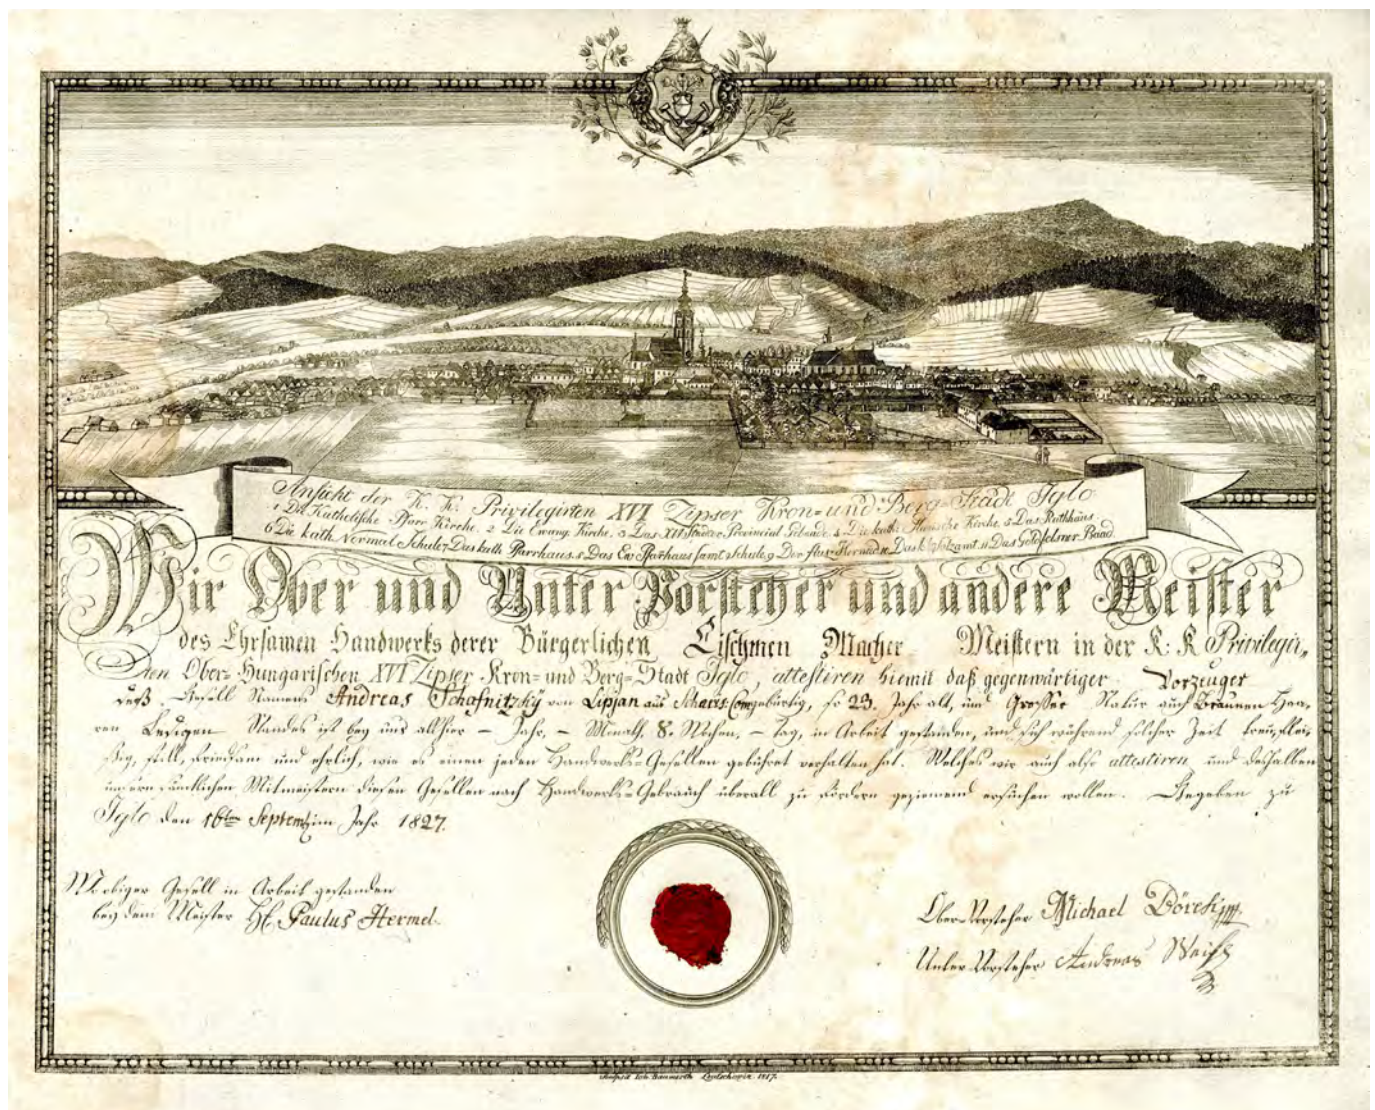 Ansicht der K. K. Privilegirten XVI Zipser Kron- und Berg-Stadt Iglo.
1 Die Katholische Pfarr Kirche. 2 Die Evang. Kirche. 3 Das XVI Städte Provincial Gebäude. 4 Die kath. Kirche. 5 Das Rathhaus.
6 Die kath. Normal Schule 7 Das kath. Pfarrhaus. 8 Das Ev. Pfarhaus samt Schule 9 Der 11 Das Baad.
Wir Ober und Unter Vorsteher und andere Meister
des Ehrsamen Handwerks derer Bürgerlichen Macher Meistern in der K: K Privilegir„
ten Ober-Hungarischen XVI Zipser-Kron- und Berg-Stadt Iglo, attestiren hiemit daß gegenwärtiger Vorzeuger
dieß Gesell Namens Andreas Schafnitzky von Lipjan aus gebürtig, so 23. Jahr alt, und Grosser Natur auch Braunen Haa„
ren Ledigen Standes ist bey uns allhier – Jahr, – Monath, 8. Wochen, – tag, in Arbeit gestanden, und sich während solcher Zeit treu, flei„
ßig, still, friedsam und ehrlich, wie es einen jeden Handwerks-Gesellen gebühret verhalten hat. Welches wir auch also attestiren und deshalben
unsern sämtlichen Mitmeistern diesen Gesellen nach Handwerks-Gebrauch überall zu fördern geziemend ersuchen wollen. Gegeben zu
Iglo den 16ten Septem im Jahr 1827.
Wo obiger Gesell in Arbeit gestanden
bey dem Meister H. Paulus Hermel.
Ober-Vorsteher Michael
Unter-Vorsteher Andreas Weiss
Sculpsit Joh. Leutschoviæ 1817.